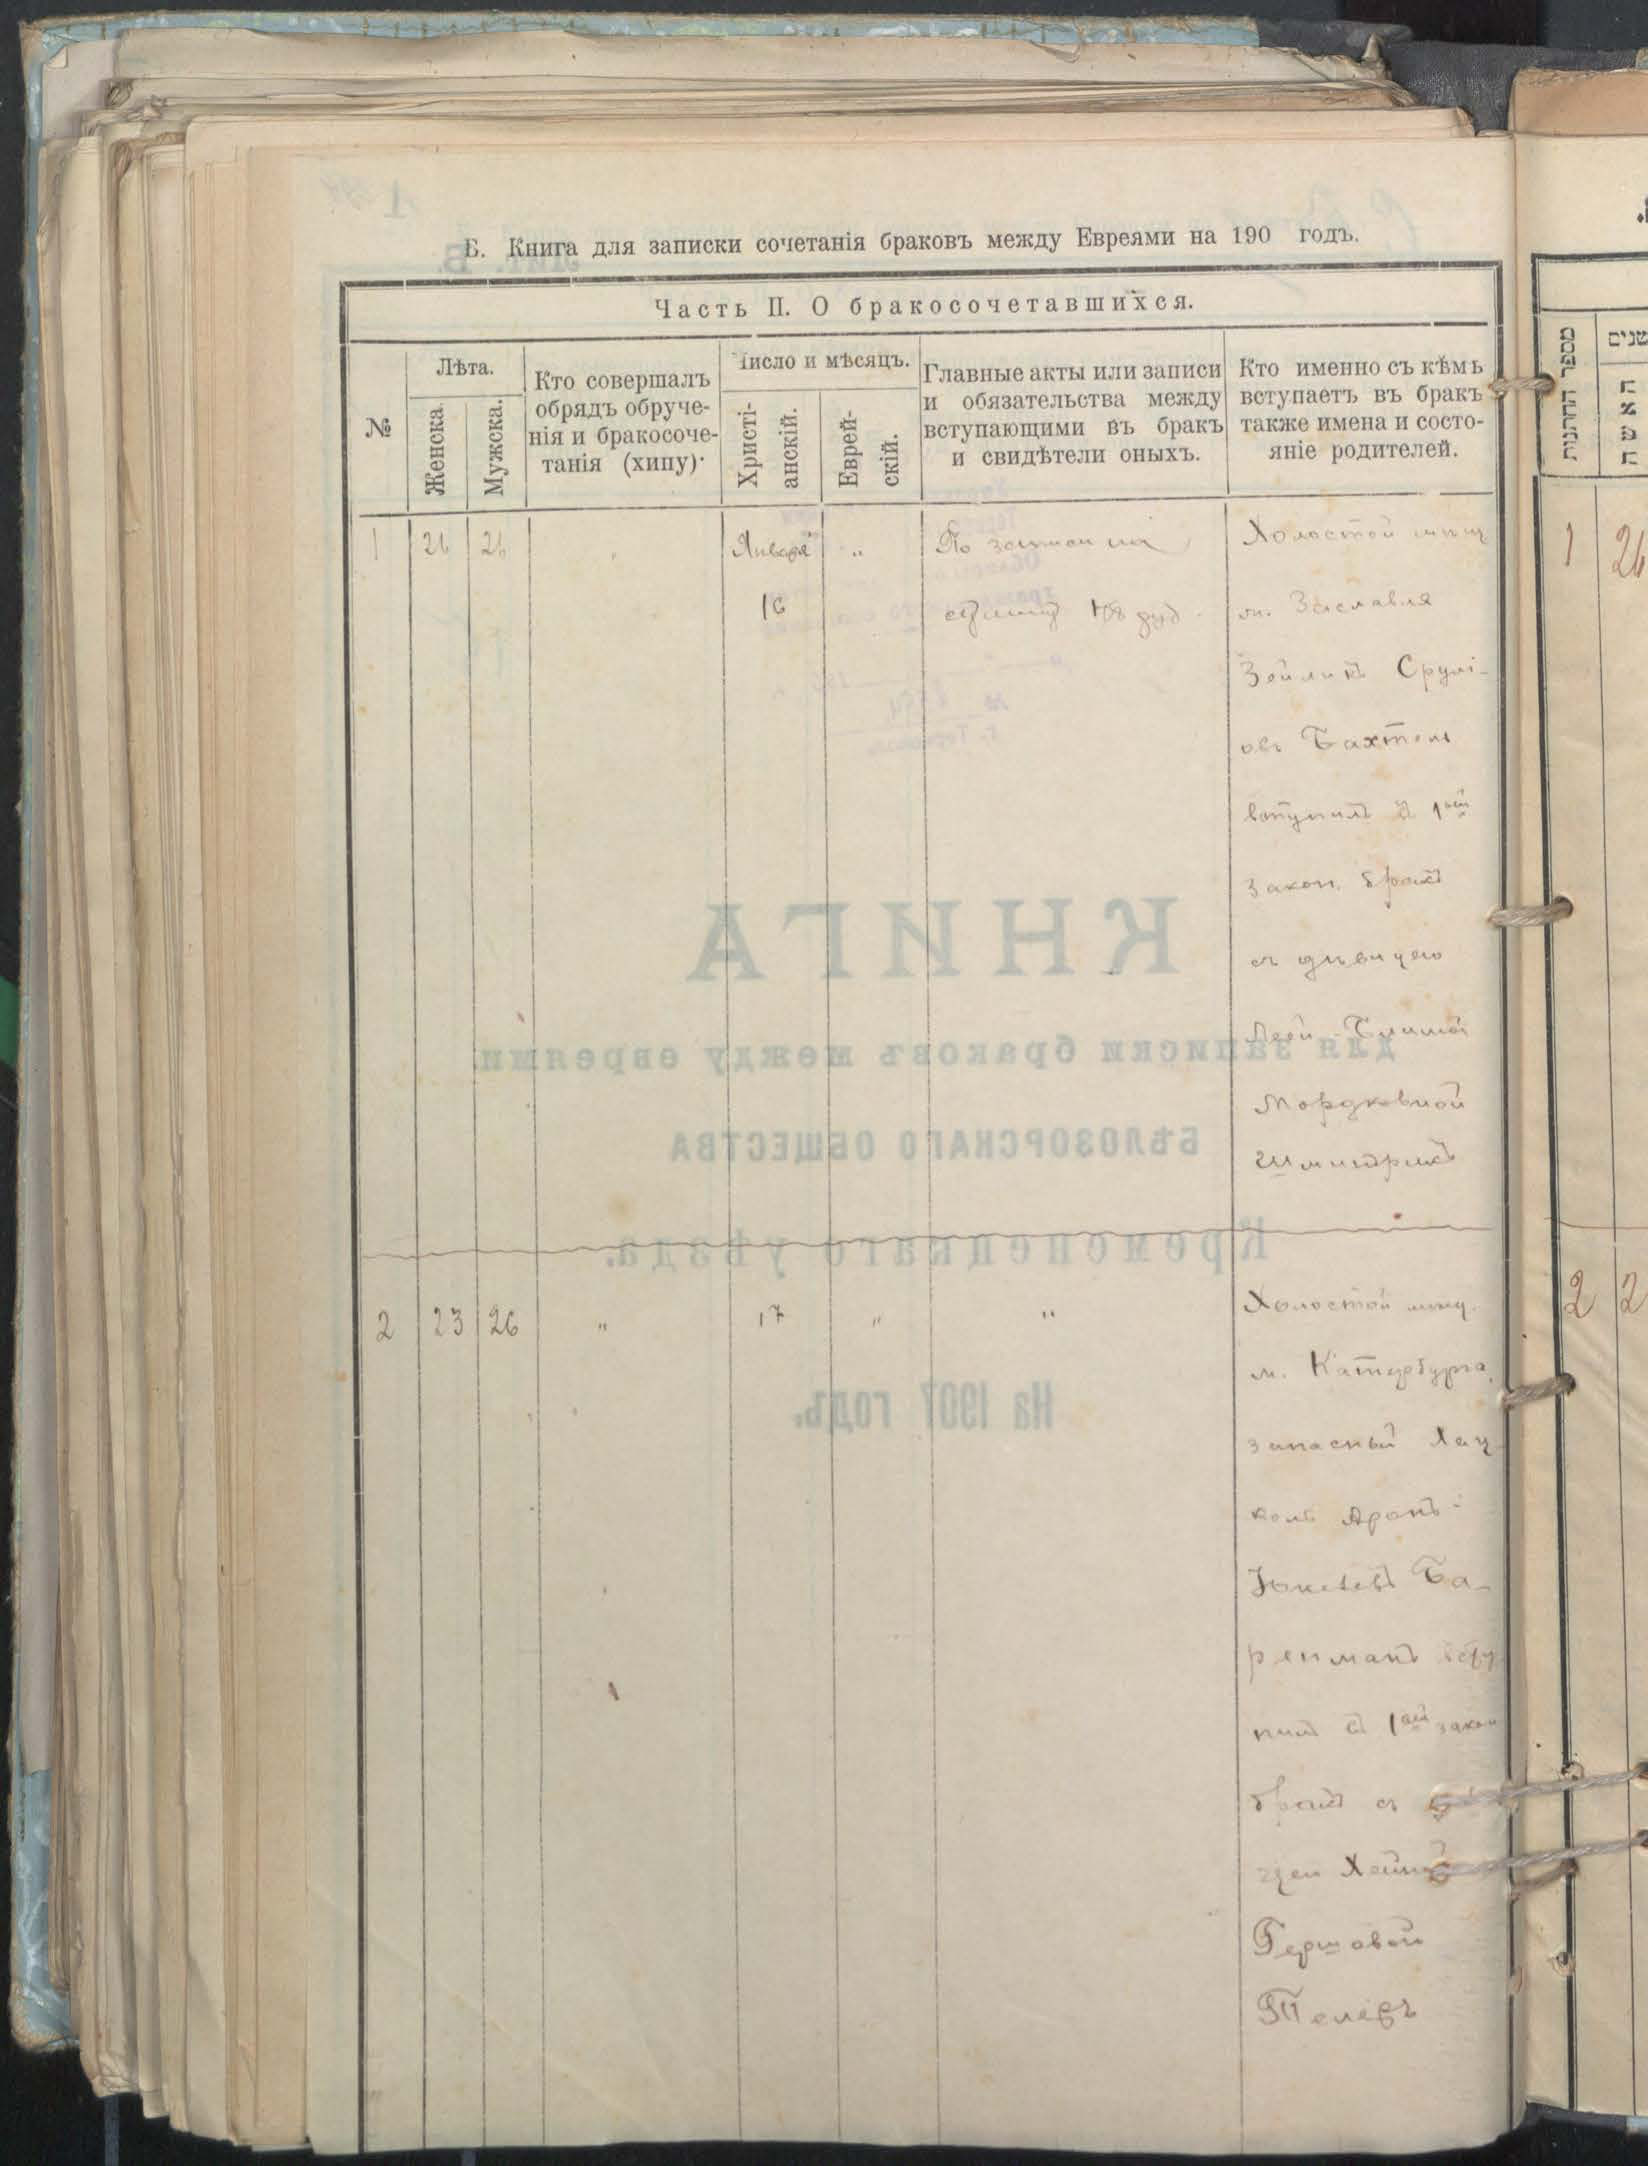 Б. Книга для записки сочетанія браковъ между Евреями на 190 годъ.
Часть II. О бракосочетавшихся.
№
Лѣта.
Женска.
Мужска.
Кто совершалъ
обрядъ обруче-
нія и бракосоче-
танія (хипу).
Число и мѣсяцъ.
Христі-
анскій.
Еврей-
скій.
Главные акты или записи
и обязательства между
вступающими въ бракъ
и свидѣтели оныхъ.
Кто именно съ кѣмъ
вступаетъ въ бракъ
также имена и состо-
яніе родителей.
1 26 26 " Января " По записи на
16 сумму руб.
Холостой мѣщ
м. Заславля
Зейликъ Срулі-
овъ Бахтель
вступилъ въ 1ый
закон. бракъ
съ дѣвицею
Мордковной
2 23 26 " 17 " "
Холостой мѣщ.
м. Катербурга
запасный Хац-
кель Аронъ-
Ба-
ренманъ всту
пилъ въ 1ый закон
бракъ съ
цею
Гершовой
Телеръ
КНИГА
для записки браковъ между евреями.
БѢЛОЗОРСКАГО ОБЩЕСТВА
Кременецкаго уѣзда.
На 1907 годъ.
מספר החתנות
שנים
האשה
1 26
2 2